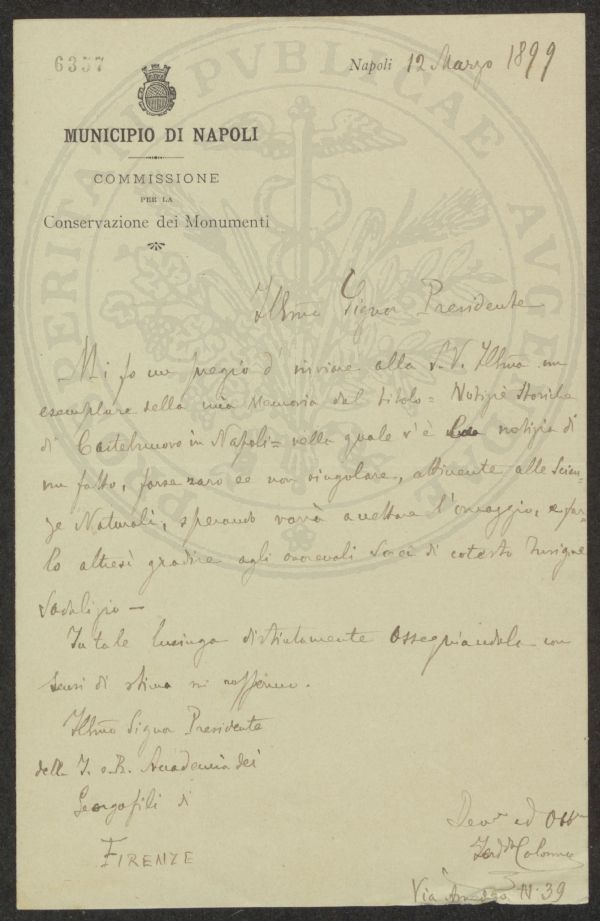 6357
Napoli 12 Marzo 1899
MUNICIPIO DI NAPOLI
COMMISSIONE
PER LA
Conservazione dei Monumenti
PROSPERITATI PVBLICAE AVGENDAE
Illmo Signor Presidente
Mi fo un pregio d'inviare alla S.V. Illma un
esemplare della mia Memoria dal titolo = Notizie Storiche
di Castelnuovo in Napoli = nella quale v'è notizia di
un fatto, forse raro se non singolare, attinente alle Scien-
ze Naturali, sperando vorrà accettare l'omaggio, e far-
lo altresì gradire agli onorevoli Soci di cotesto Insigne
Sodalizio —
In tale lusinga distintamente ossequiandola con
sensi di stima mi raffermo.
Illmo Signor Presidente
della I. e R. Accademia dei
Georgofili di
FIRENZE
Devmo ed Obbmo
Ferddo Colonna
Via Amedeo N. 39